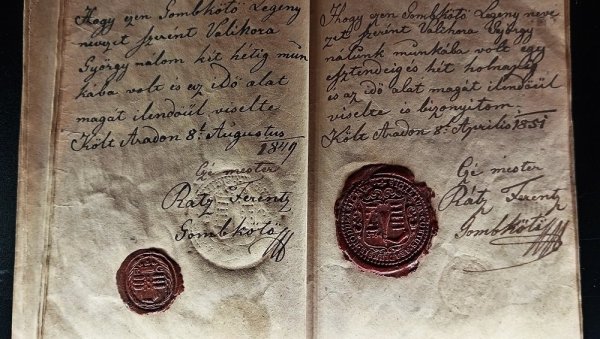 Hogy ezen Gombkötő Legény
nevezet szerent Valikora
György nálom két hétig mun
kába volt és ez idő alat
magát ilendőűl viselte
Költ Aradon 8t Augustus
1849
Gé mester
Rátz Ferentz
Gombkötő
Hogy ezen Gombkötő Legény neve
zet szerint Valikora György
nálunk munkába volt egy
esztendeig és két holnapig
és az idő alat magát ilendőűl
viselte is bizonyitom.
Költ Aradon 8t Aprilis 1851
Gé mester
Rátz Ferentz
Gombkötő